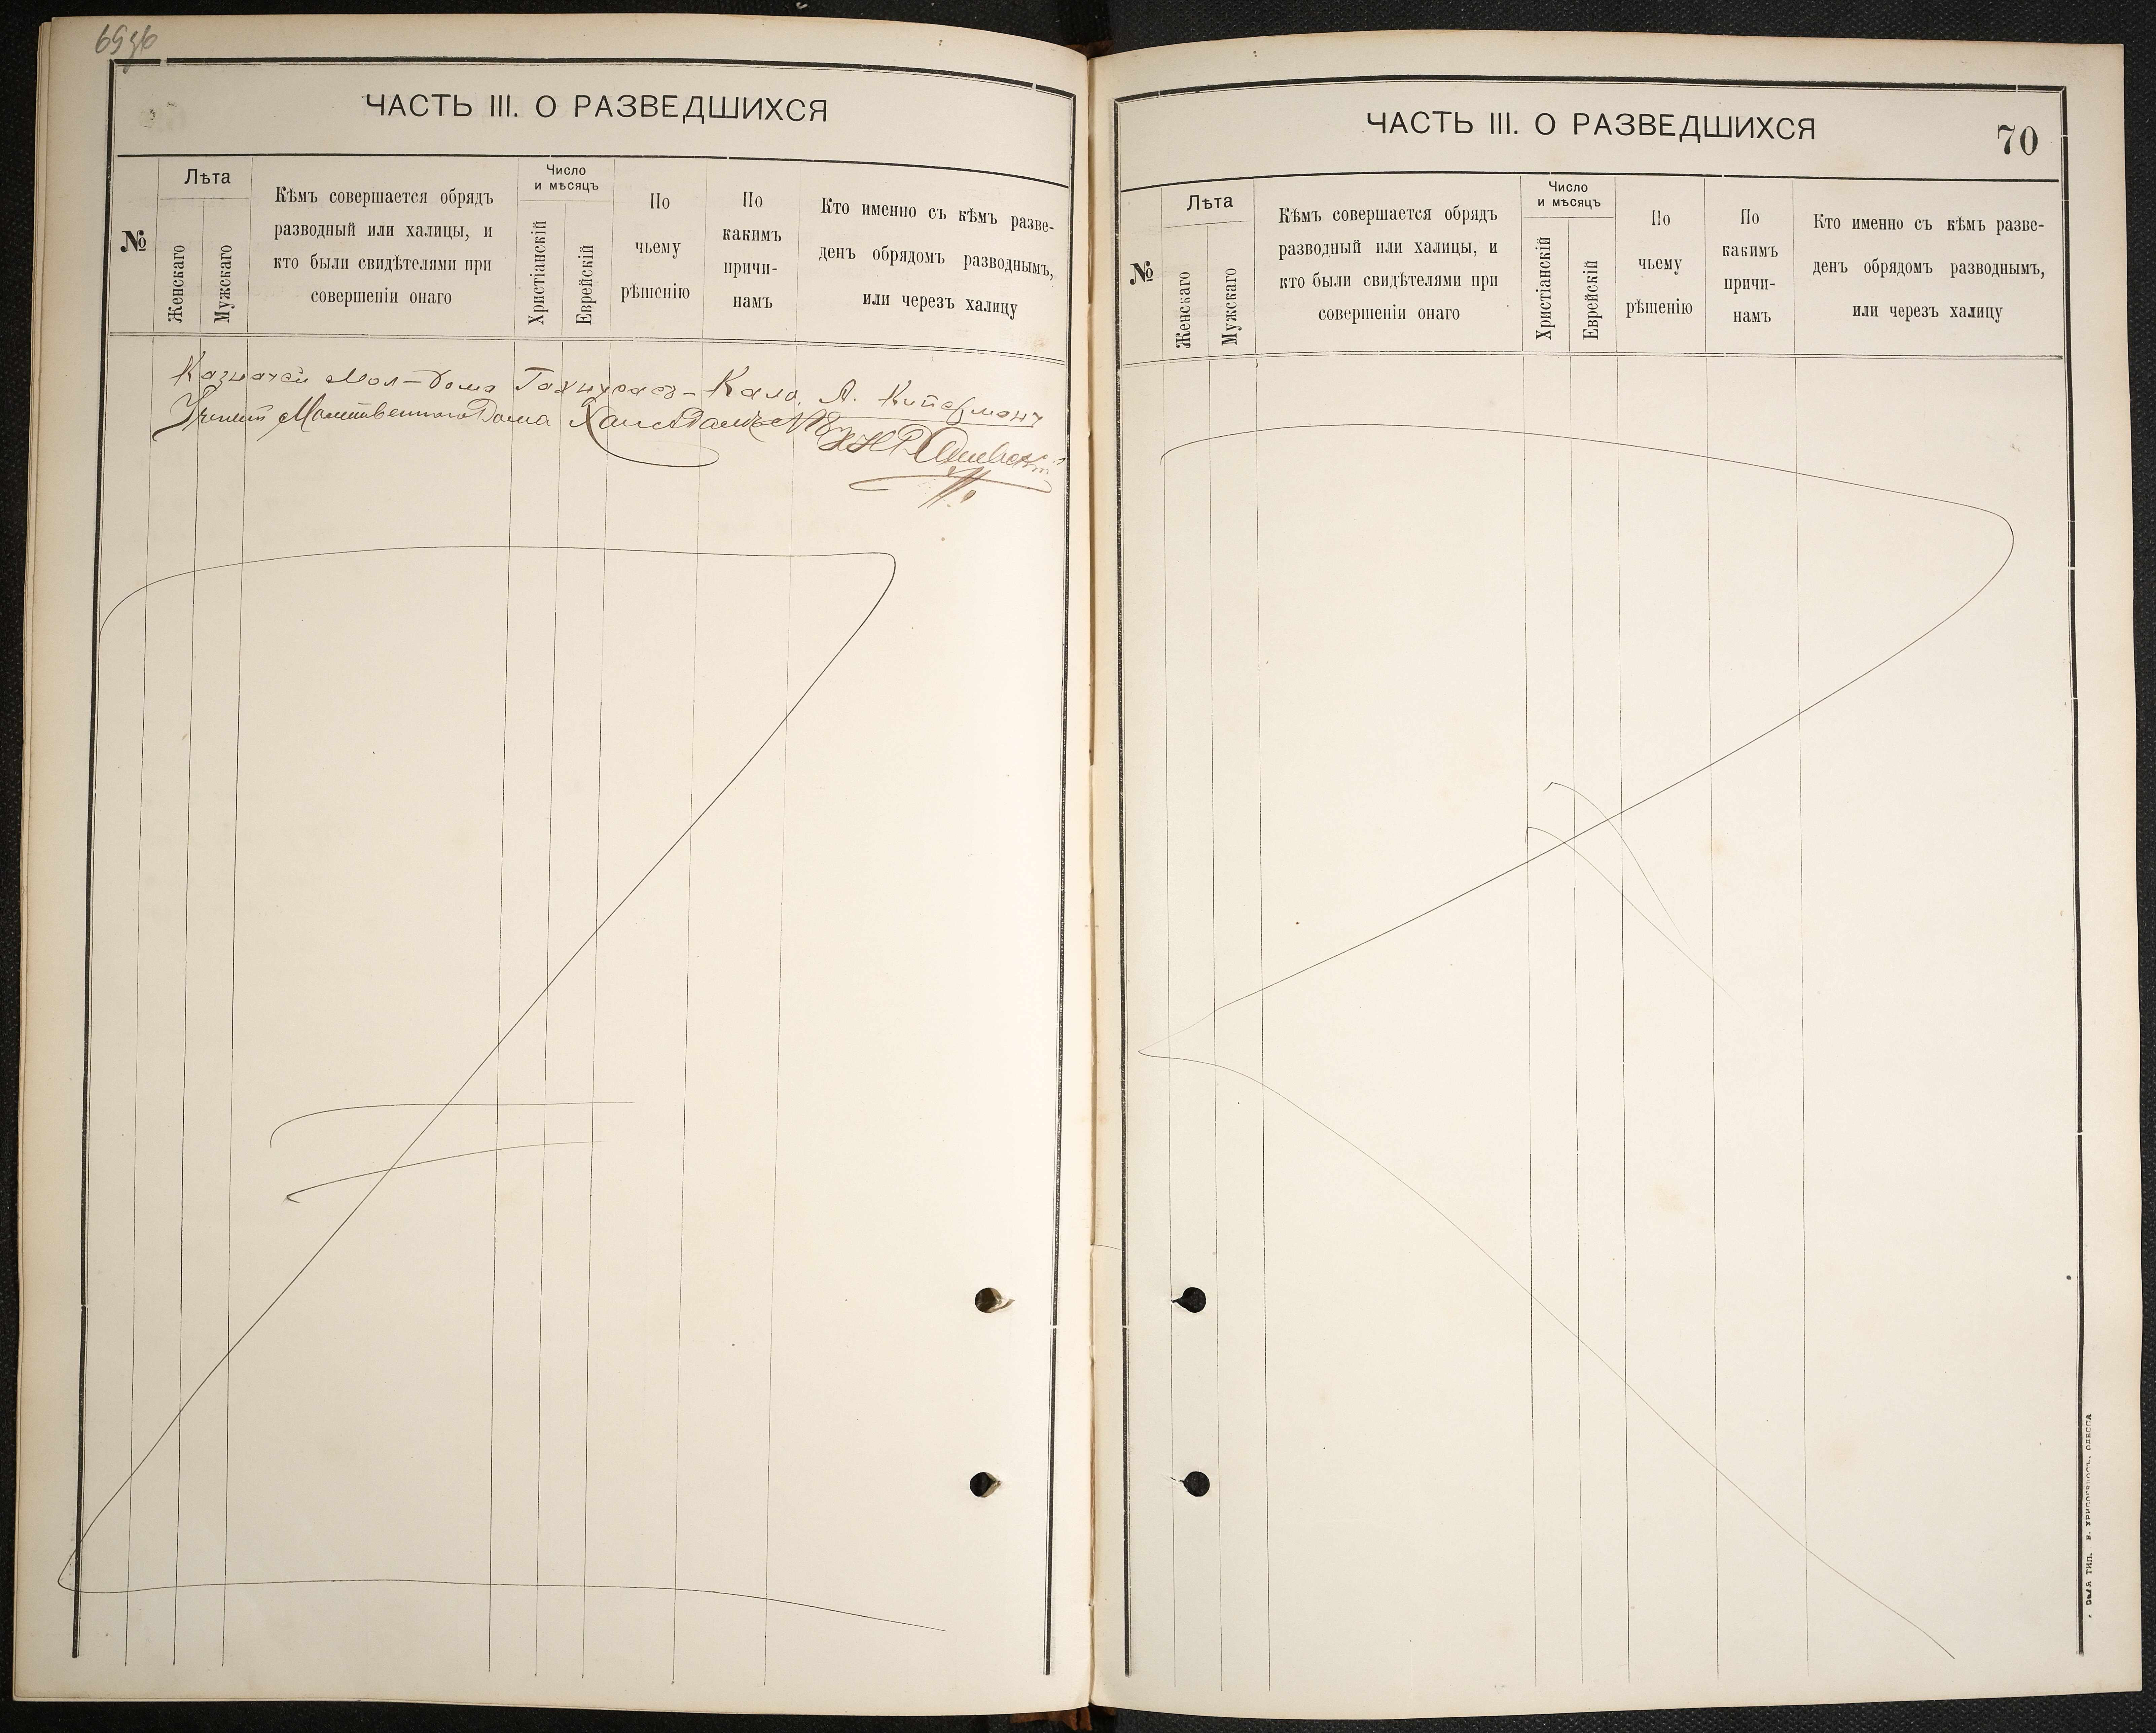 ЧАСТЬ III. О РАЗВЕДШИХСЯ
№
Лѣта
Женскаго
Мужскаго
Кѣмъ совершается обрядъ
разводный или халицы, и
кто были свидѣтелями при
совершеніи онаго
Число
и мѣсяцъ
Христіанскій
Еврейскій
По
чьему
рѣшенію
По
какимъ
причи-
намъ
Кто именно съ кѣмъ разве-
денъ обрядомъ разводнымъ,
или черезъ халицу
Казначей Мол-дома А. Киперманъ
Ученый Молитвеннаго Дома
ЧАСТЬ III. О РАЗВЕДШИХСЯ
70
№
Лѣта
Женскаго
Мужскаго
Кѣмъ совершается обрядъ
разводный или халицы, и
кто были свидѣтелями при
совершеніи онаго
Число
и мѣсяцъ
Христіанскій
Еврейскій
По
чьему
рѣшенію
По
какимъ
причи-
намъ
Кто именно съ кѣмъ разве-
денъ обрядомъ разводнымъ,
или черезъ халицу
ТИП. ОДЕССА